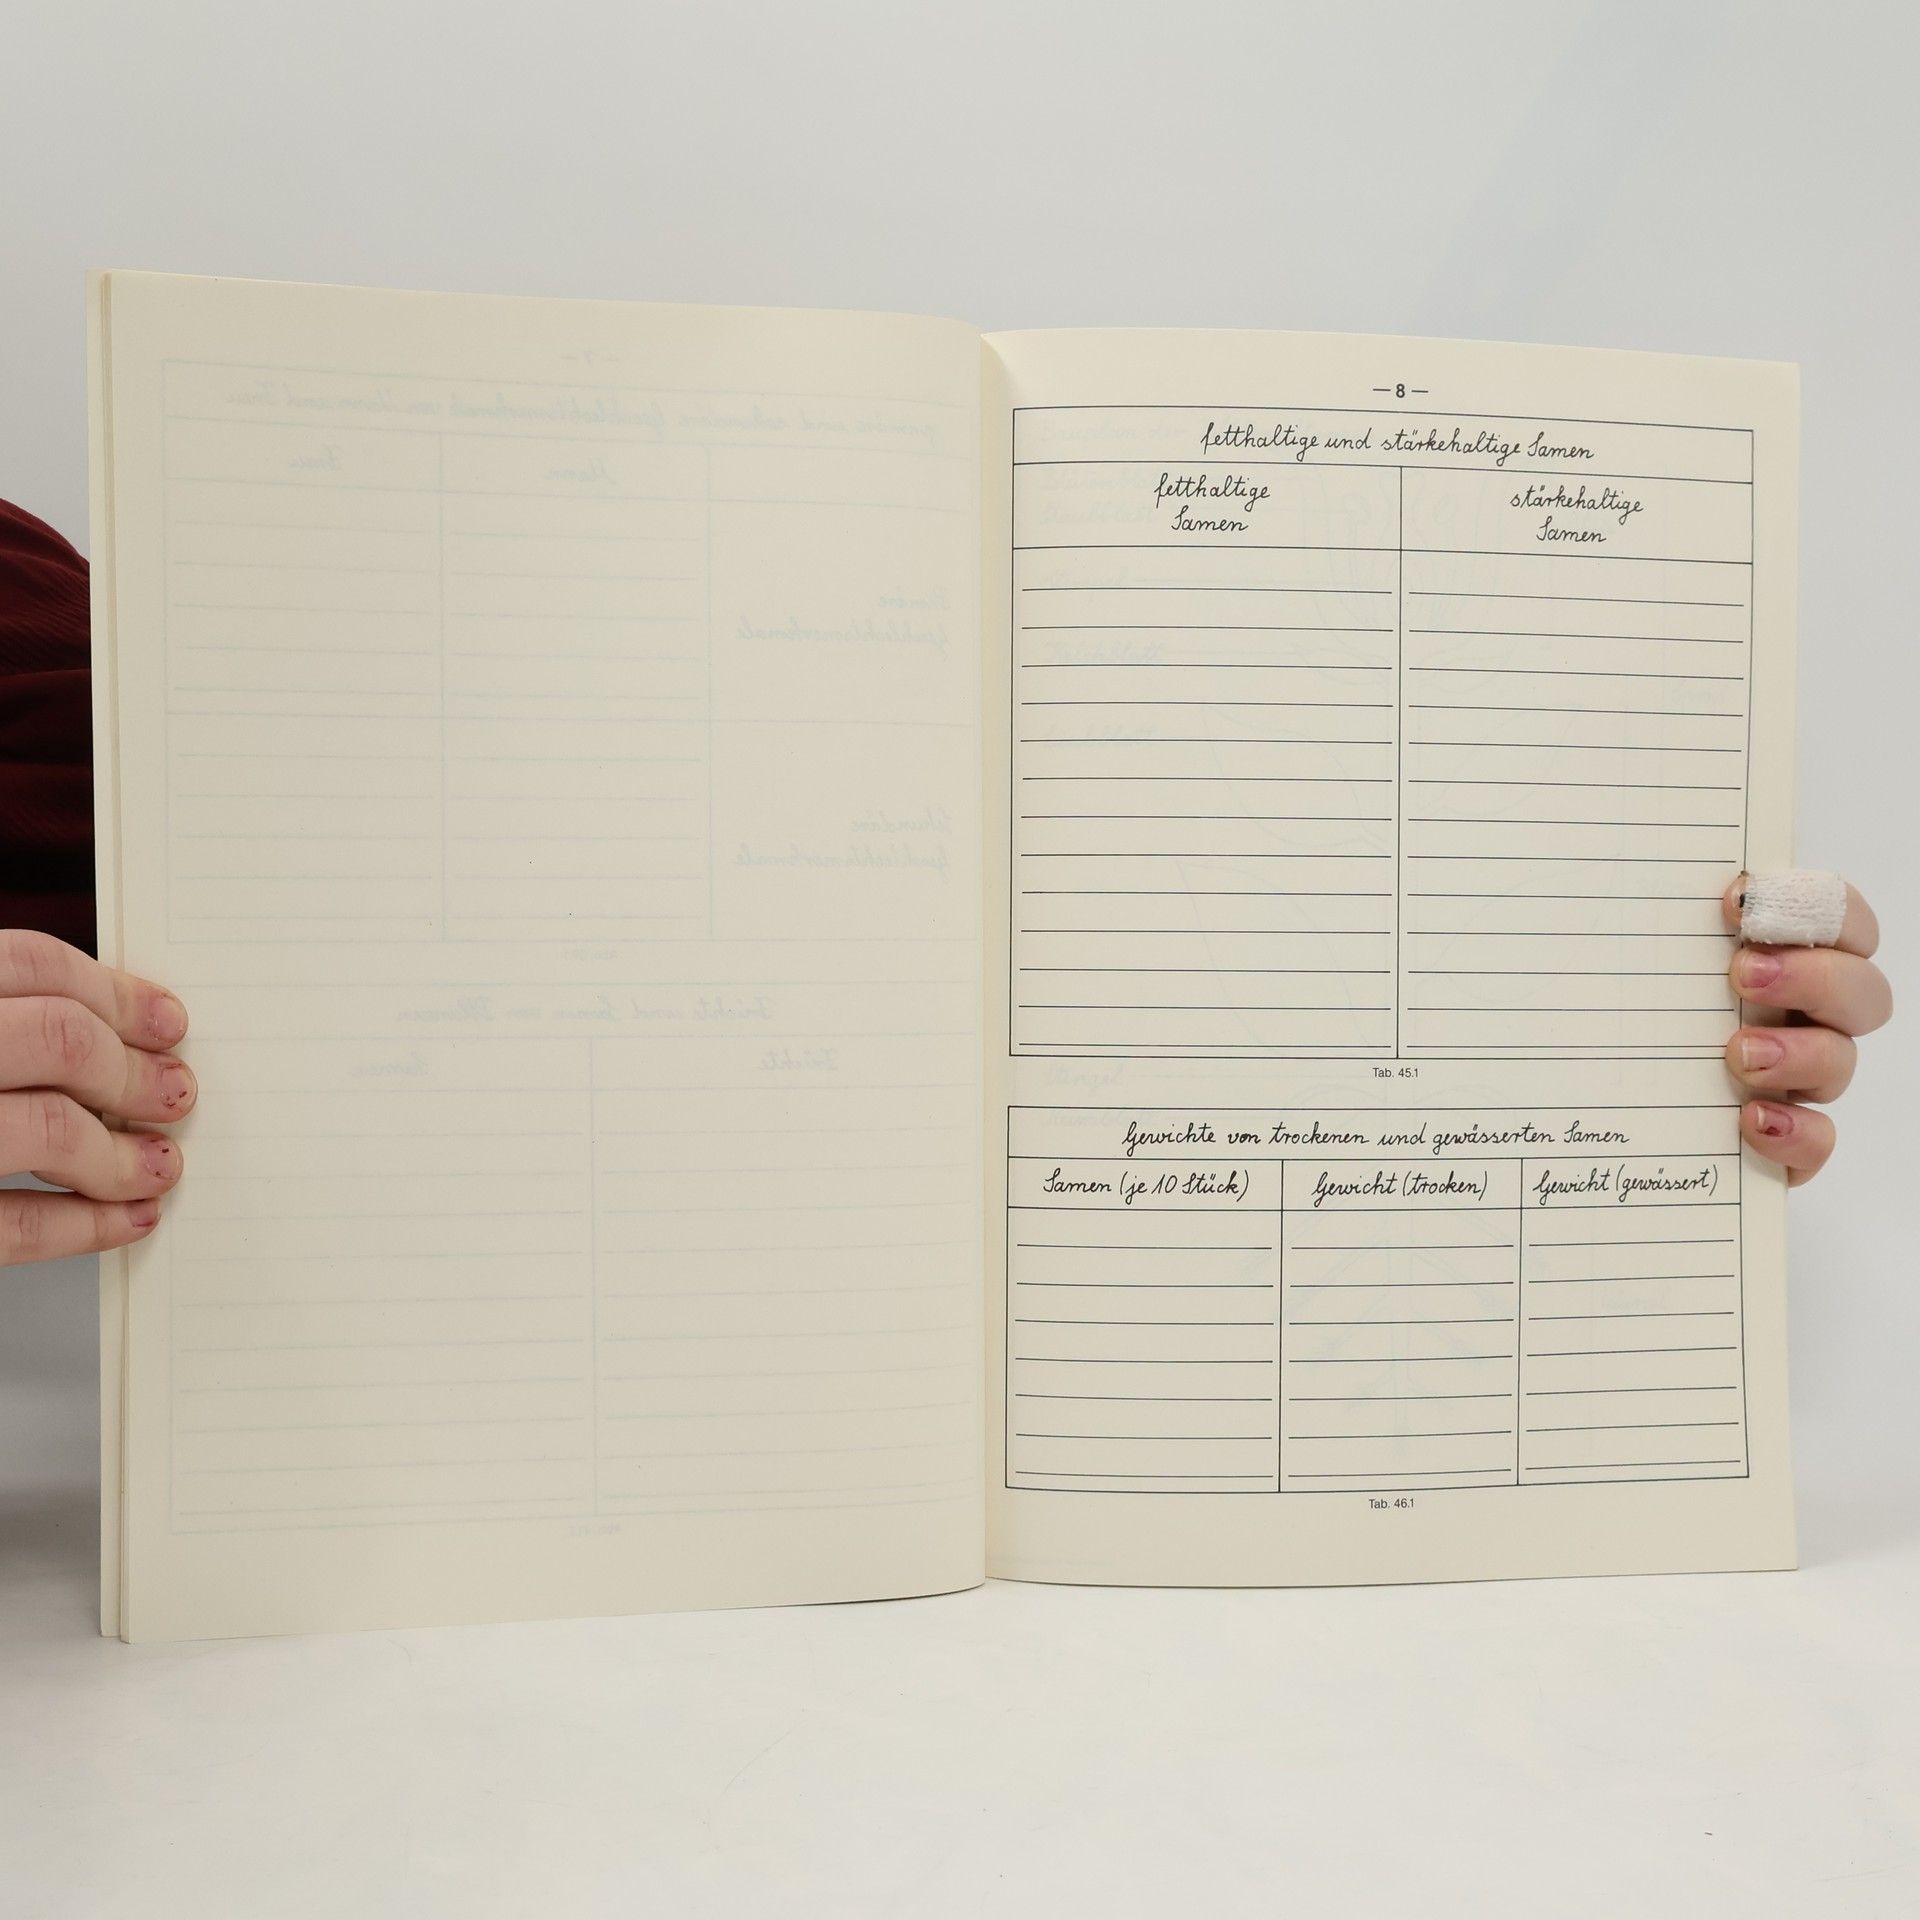 — 8 —
fetthaltige und stärkehaltige Samen
fetthaltige
Samen
stärkehaltige
Samen
Tab. 45.1
Gewichte von trockenen und gewässerten Samen
Samen (je 10 Stück)
Gewicht (trocken)
Gewicht (gewässert)
Tab. 46.1